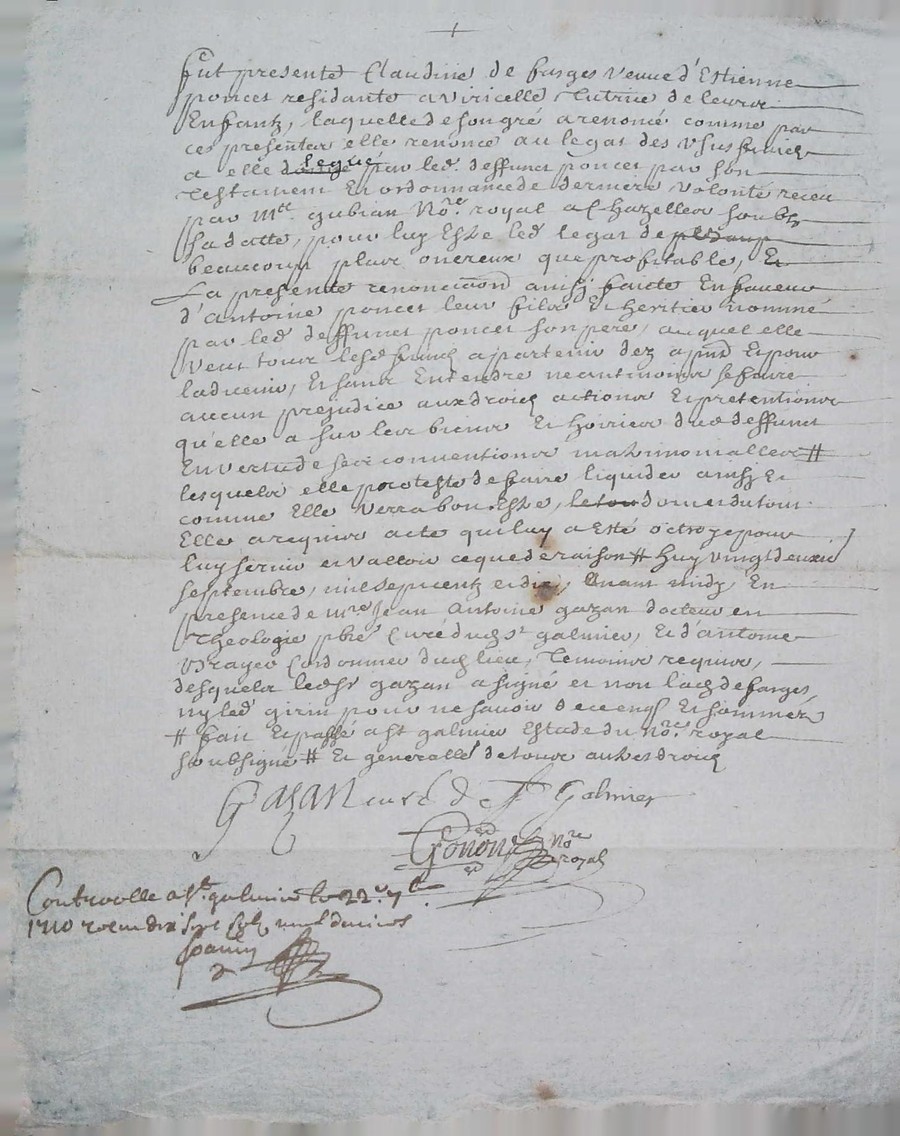 fut presente Claudine de farges veuve d'Estienne
poncet residante a viricelle tutrice de leurs
Enfantz, laquelle de son gré a renoncé comme par
ces presentes elle renonce au legat des usufruicts
a elle legué par led. deffunct poncet par son
Testament Et ordonnance de derniere volonté receu
par Mre. gubian No.re royal a Chazelles soubz
sa datte, pour luy Estre led legat de
beaucoup plus onereux que profitable, Et
La presente renonciaon ainsy faicte En faveur
d'antoine poncet leur filz Et heritier nommé
par led deffunct poncet son pere, auquel elle
veut tous lesd fruicts apartenir dez a pnt Et pour
ladvenir, Et sans Entendre neantmoins se faire
aucun prejudice aux droicts actions Et pretentions
qu'elle a sur les biens Et hoirie dud deffunct
En vertu de ses conventions matrimonialles #
lesquels elle proteste de faire liquider ainsy Et
comme Elle verra bon Estre, dont Et du tout
Elle a requis acte qui luy a Esté octroyé pour
luy servir et valloir ce que de raison # huy vingt deuxie
septembre, mil sept centz et dix, avant midy, En
presence de mre Jean Antoine gazan docteur en
Theologie pbre Curé dud st galmier, Et d'antoine
Cordonnier dud lieu, temoins requis,
desquels led sr gazan a signé et non lad de farges
ny led girin pour ne savoir de ce enq Et sommés
# fait Et passé a st galmier Estude du no.re royal
soubsigné # Et generallement de tous autres droicts
Gazan curé de St Galmier
Gonon No.re
royal
Controolle a St. galmier le 22e 7bre
1710 receu dix sept sols